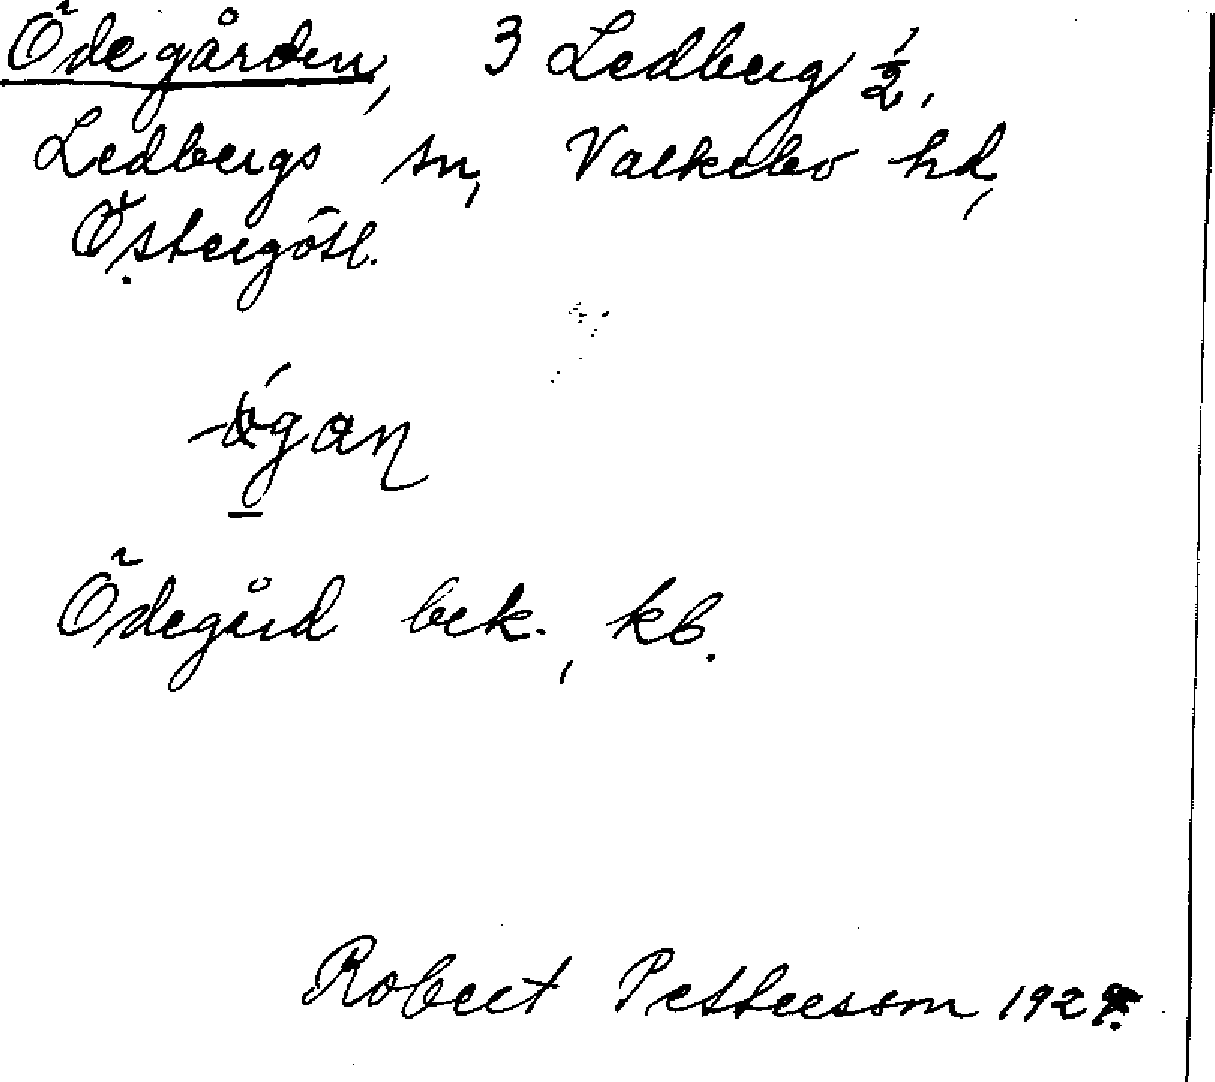 Ödegården, 3 Ledberg 1/2,
Ledbergs sn, Valkebo hd,
Östergötl.
Ödegård bek., kb.
Robert Pettersson